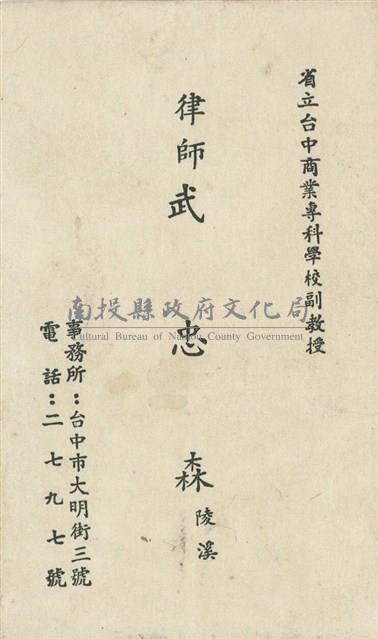 省立台中商業專科學校副教授
律師武忠森
陵溪
事務所：台中市大明街三號
電話：二七九七號
南投縣政府文化局
Cultural Bureau of Nantou County Government